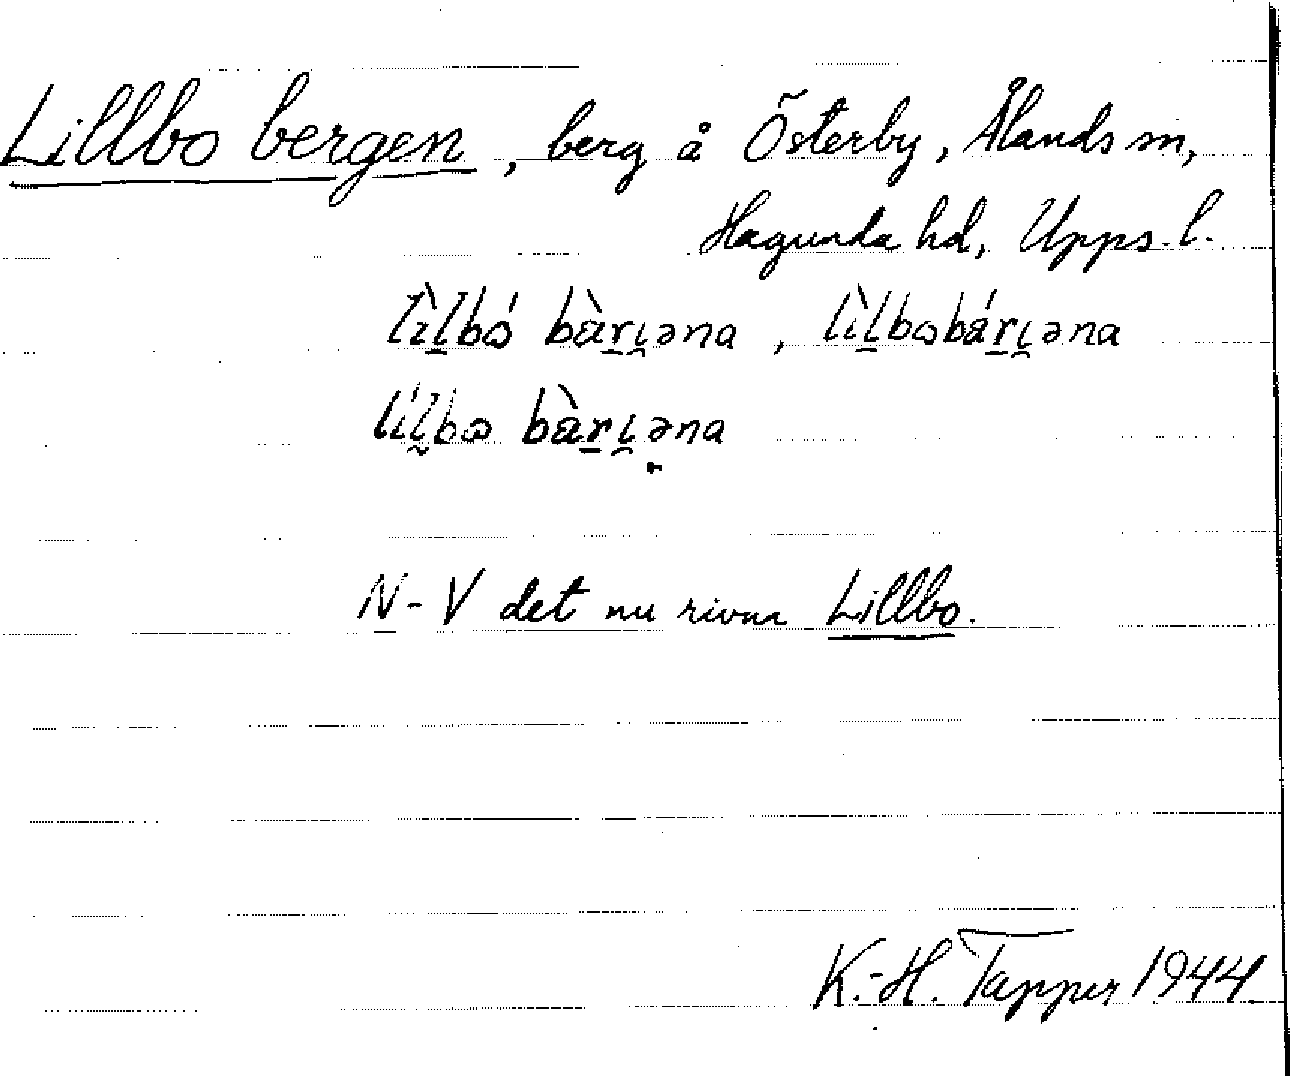 Lillbo bergen, berg å Österby, Ålands sn,
Hagunda hd, Upps. l.
lìl̠bɷ́ bàr̠ɩ̯əna, lìl̠bɷbár̠ɩ̯əna
líl̬bɷ bàr̠ɩ̯əna
N-V det nu rivna Lillbo.
K.-H. Tapper 1944